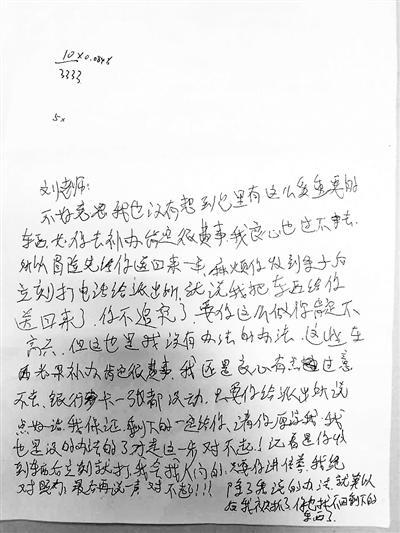 10×0.0848
3333
5×
刘老师:
不好意思我也没有想到包里有这么多重要的
东西, 你去补办肯定很费事, 我良心也过不去,
所以冒险先给你送回来一半, 麻烦你收到东子后
立刻打电话给派出所, 就说我把东西给你
送回来了, 你不追究了, 要你这么做你肯定不
高兴, 但这也是我没有办法的办法, 这些东
西老早补办肯也很费事, 我还是良心有点过意
不去, 银行卡一张都没动, 只要你给派出所说
点好话, 我保证剩下的一定给你, 请你原谅我, 我
也是没的办法的了才走这一步对不起! 记着是你收
到东西后立刻就打, 我会找人问的, 只要你讲信誉, 我绝
对照办, 最后再说一声对不起!!! 除了我说的办法, 就算以
后我被抓了你也找不回剩下的
东西了